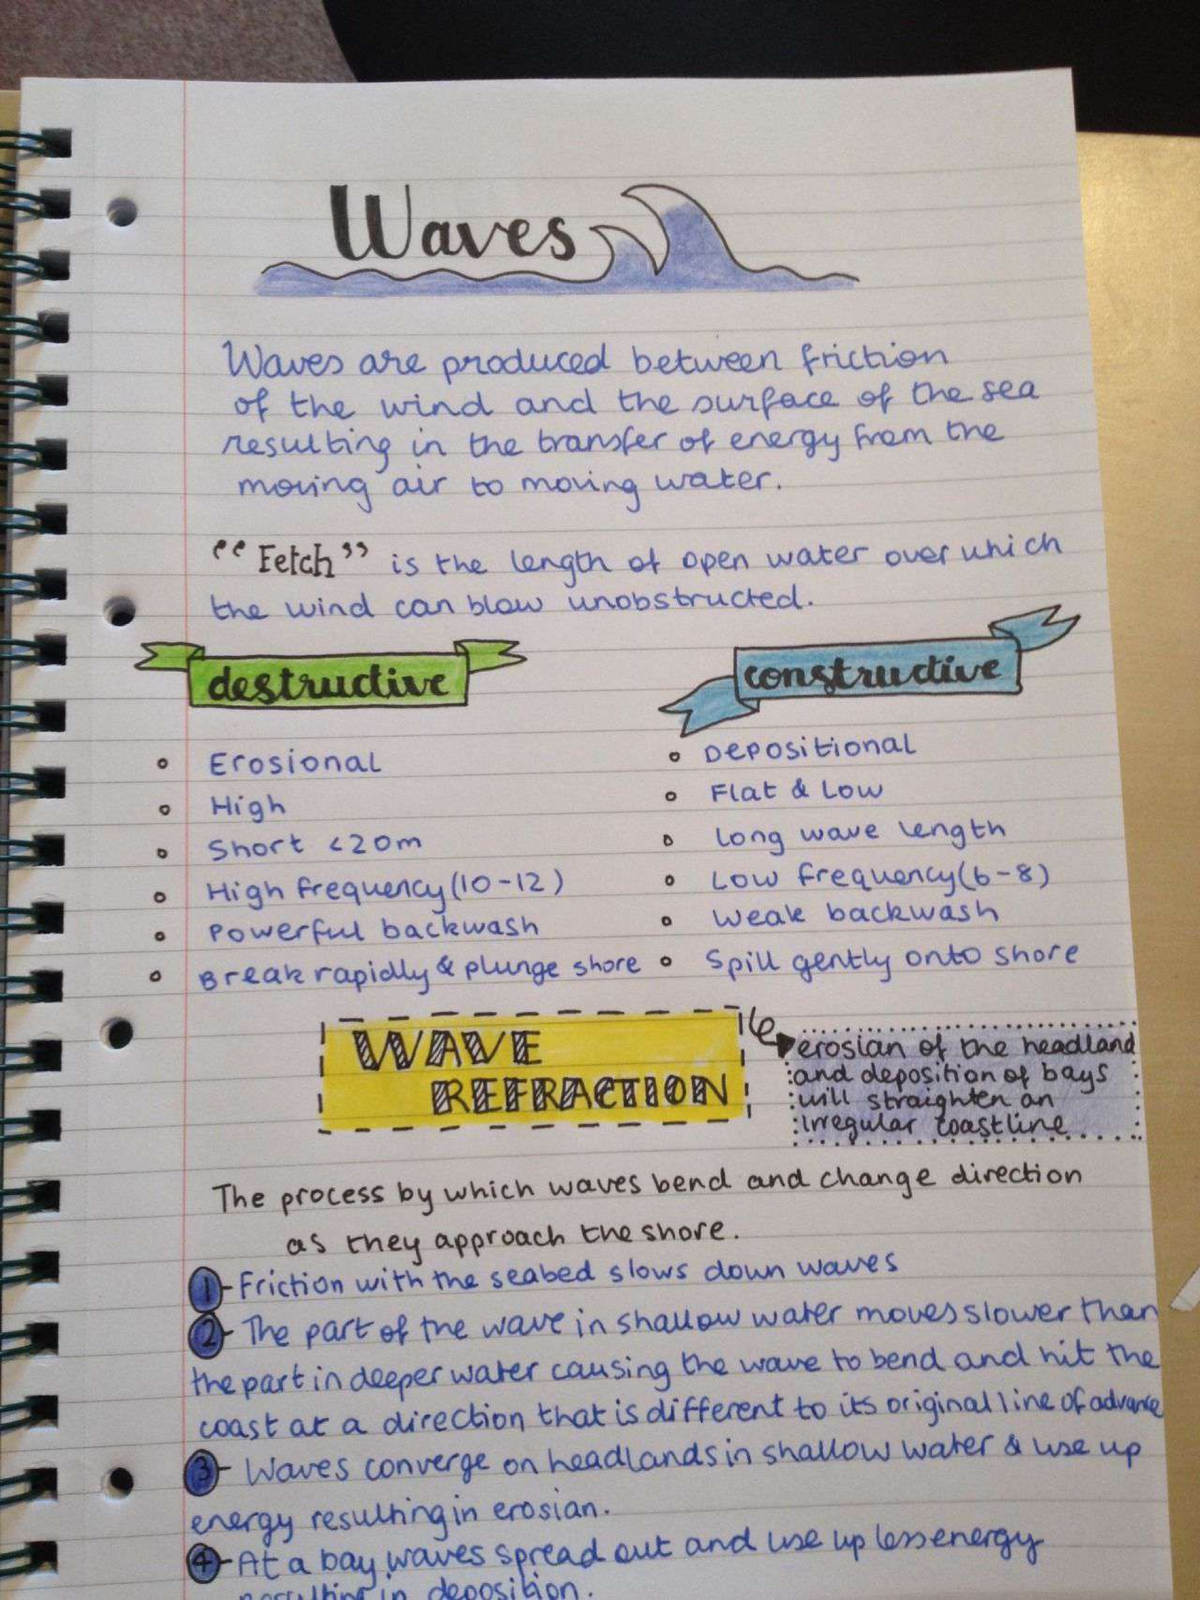 Waves
Waves are produced between friction
of the wind and the surface of the sea
resulting in the transfer of energy from the
moving air to moving water.
"Fetch" is the length of open water over which
the wind can blow unobstructed.
destructive
Erosional
High
Short <20m
High frequency (10-12)
Powerful backwash
Break rapidly & plunge shore
constructive
Depositional
Flat & Low
Long wave length
Low frequency (6-8)
Weak backwash
Spill gently onto shore
WAVE
REFRACTION
erosian of the headland
and deposition of bays
will straighten an
irregular coastline
The process by which waves bend and change direction
as they approach the shore.
1 - Friction with the seabed slows down waves
2 - The part of the wave in shallow water moves slower than
the part in deeper water causing the wave to bend and hit the
coast at a direction that is different to its original line of advance
3 - Waves converge on headlands in shallow water & use up
energy resulting in erosian.
4 - At a bay waves spread out and use up less energy
resulting in deposition.